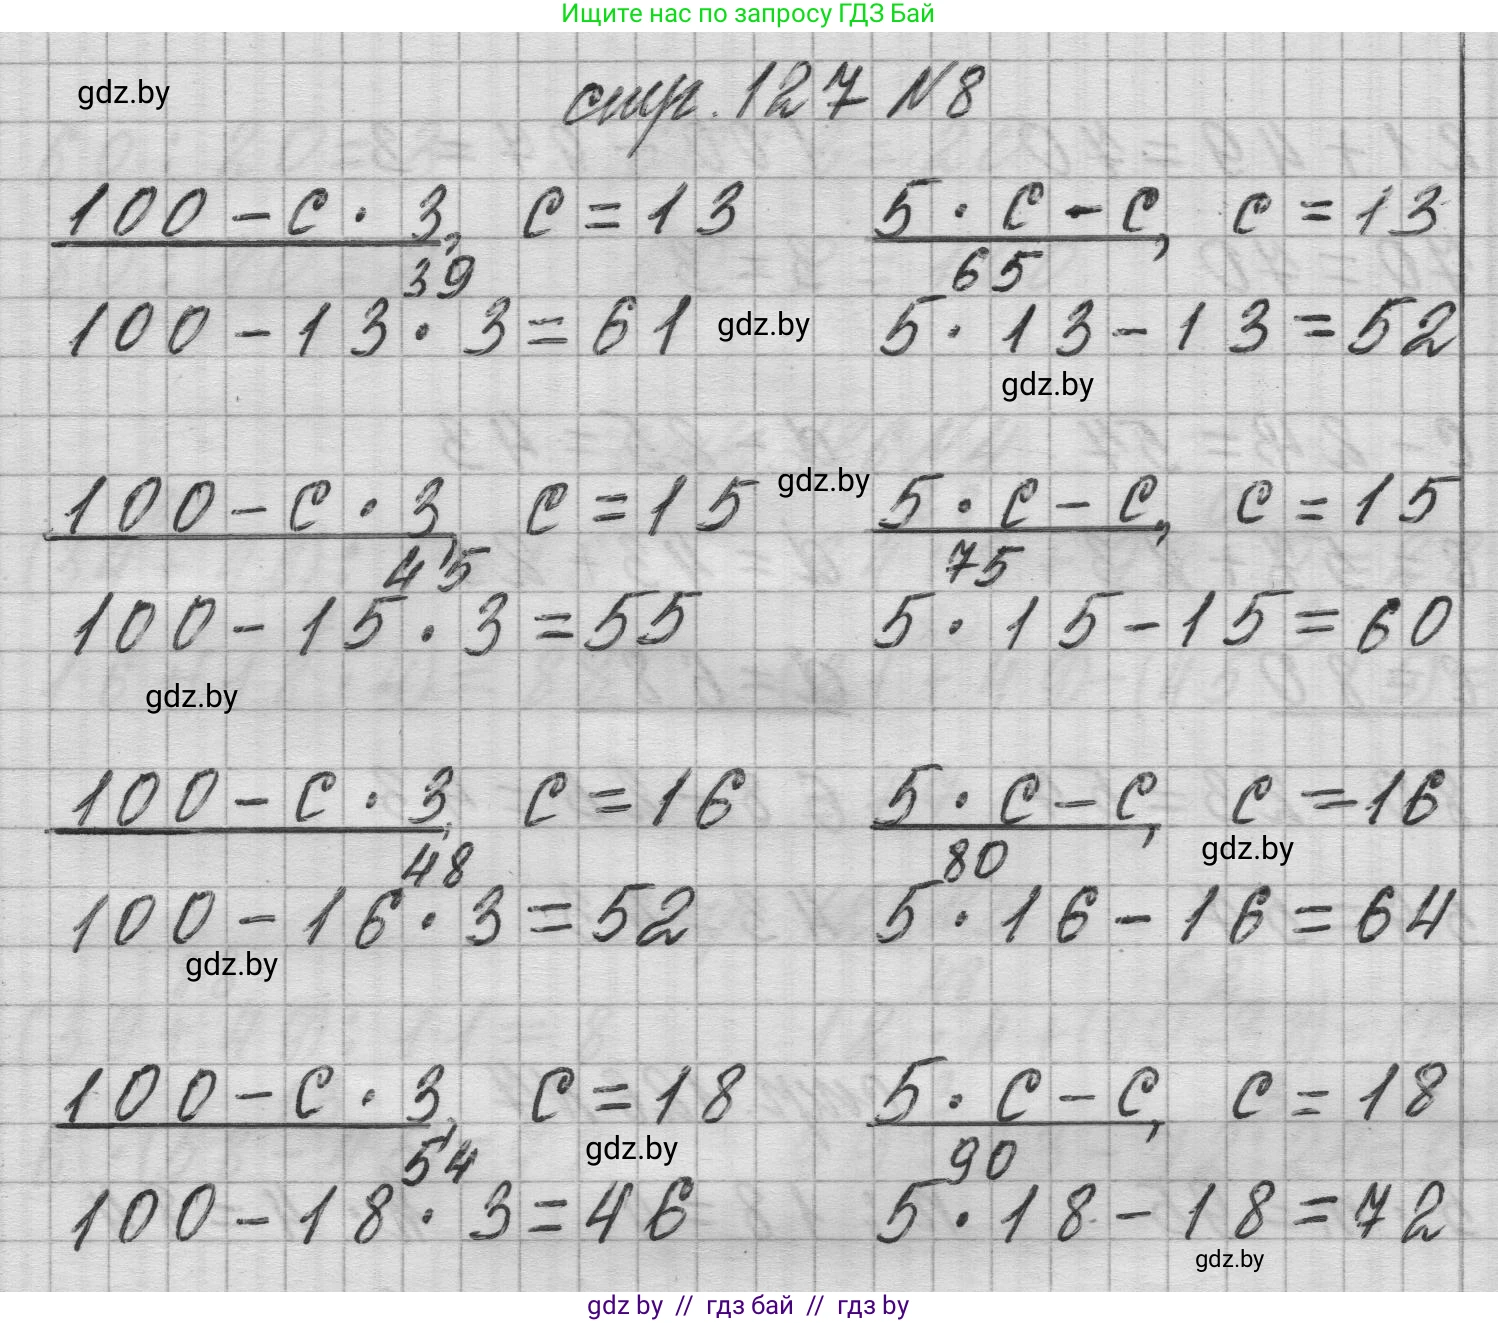 Ищите нас по запросу ГДЗ Бай
gdz.by
стр. 127 №8
100 - c · 3, c = 13 5 · c - c, c = 13
39 65
100 - 13 · 3 = 61 gdz.by 5 · 13 - 13 = 52
gdz.by
100 - c · 3, c = 15 gdz.by 5 · c - c, c = 15
45 75
100 - 15 · 3 = 55 5 · 15 - 15 = 60
gdz.by
100 - c · 3, c = 16 5 · c - c, c = 16
48 80 gdz.by
100 - 16 · 3 = 52 5 · 16 - 16 = 64
gdz.by
100 - c · 3, c = 18 5 · c - c, c = 18
54 gdz.by 90
100 - 18 · 3 = 46 5 · 18 - 18 = 72
gdz.by
gdz by // гдз бай // гдз by